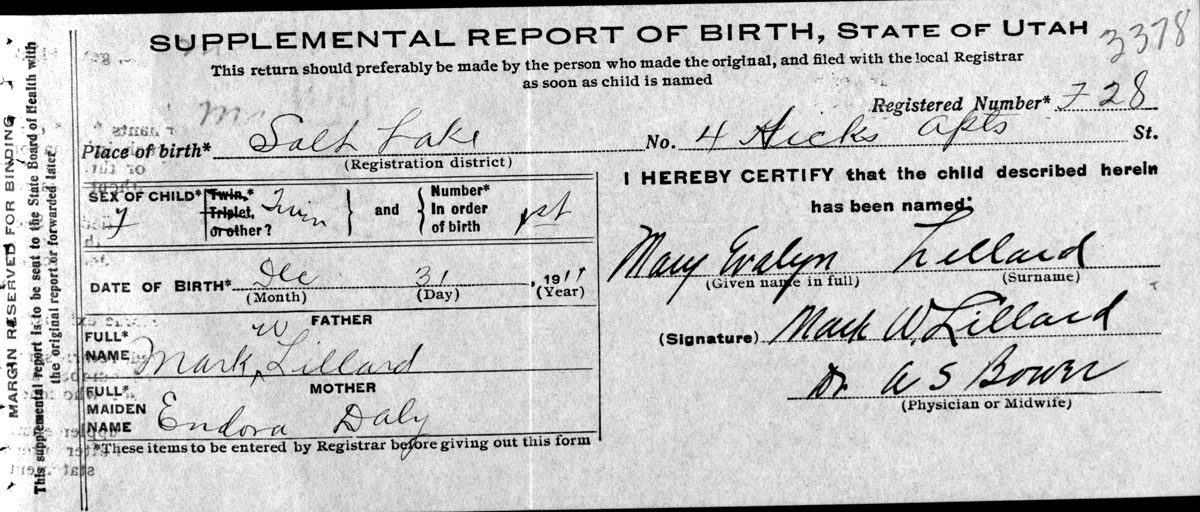 SUPPLEMENTAL REPORT OF BIRTH, STATE OF UTAH
3378
This return should preferably be made by the person who made the original, and filed with the local Registrar
as soon as child is named
Registered Number* 728
Place of birth* Salt Lake No. 4 Hicks Apts St.
(Registration district)
SEX OF CHILD* F
Twin,* Triplet, or other? Twin } and { Number* In order of birth 1st
DATE OF BIRTH* Dec 31, 1911
(Month) (Day) (Year)
FATHER
FULL* NAME Mark W Lillard
MOTHER
FULL* MAIDEN NAME Endora Daly
*These items to be entered by Registrar before giving out this form
I HEREBY CERTIFY that the child described herein
has been named:
Mary Evalyn Lillard
(Given name in full) (Surname)
(Signature) Mark W. Lillard
Dr. A S Bower
(Physician or Midwife)
MARGIN RESERVED FOR BINDING
This supplemental report is to be sent to the State Board of Health with
the original report or forwarded later.